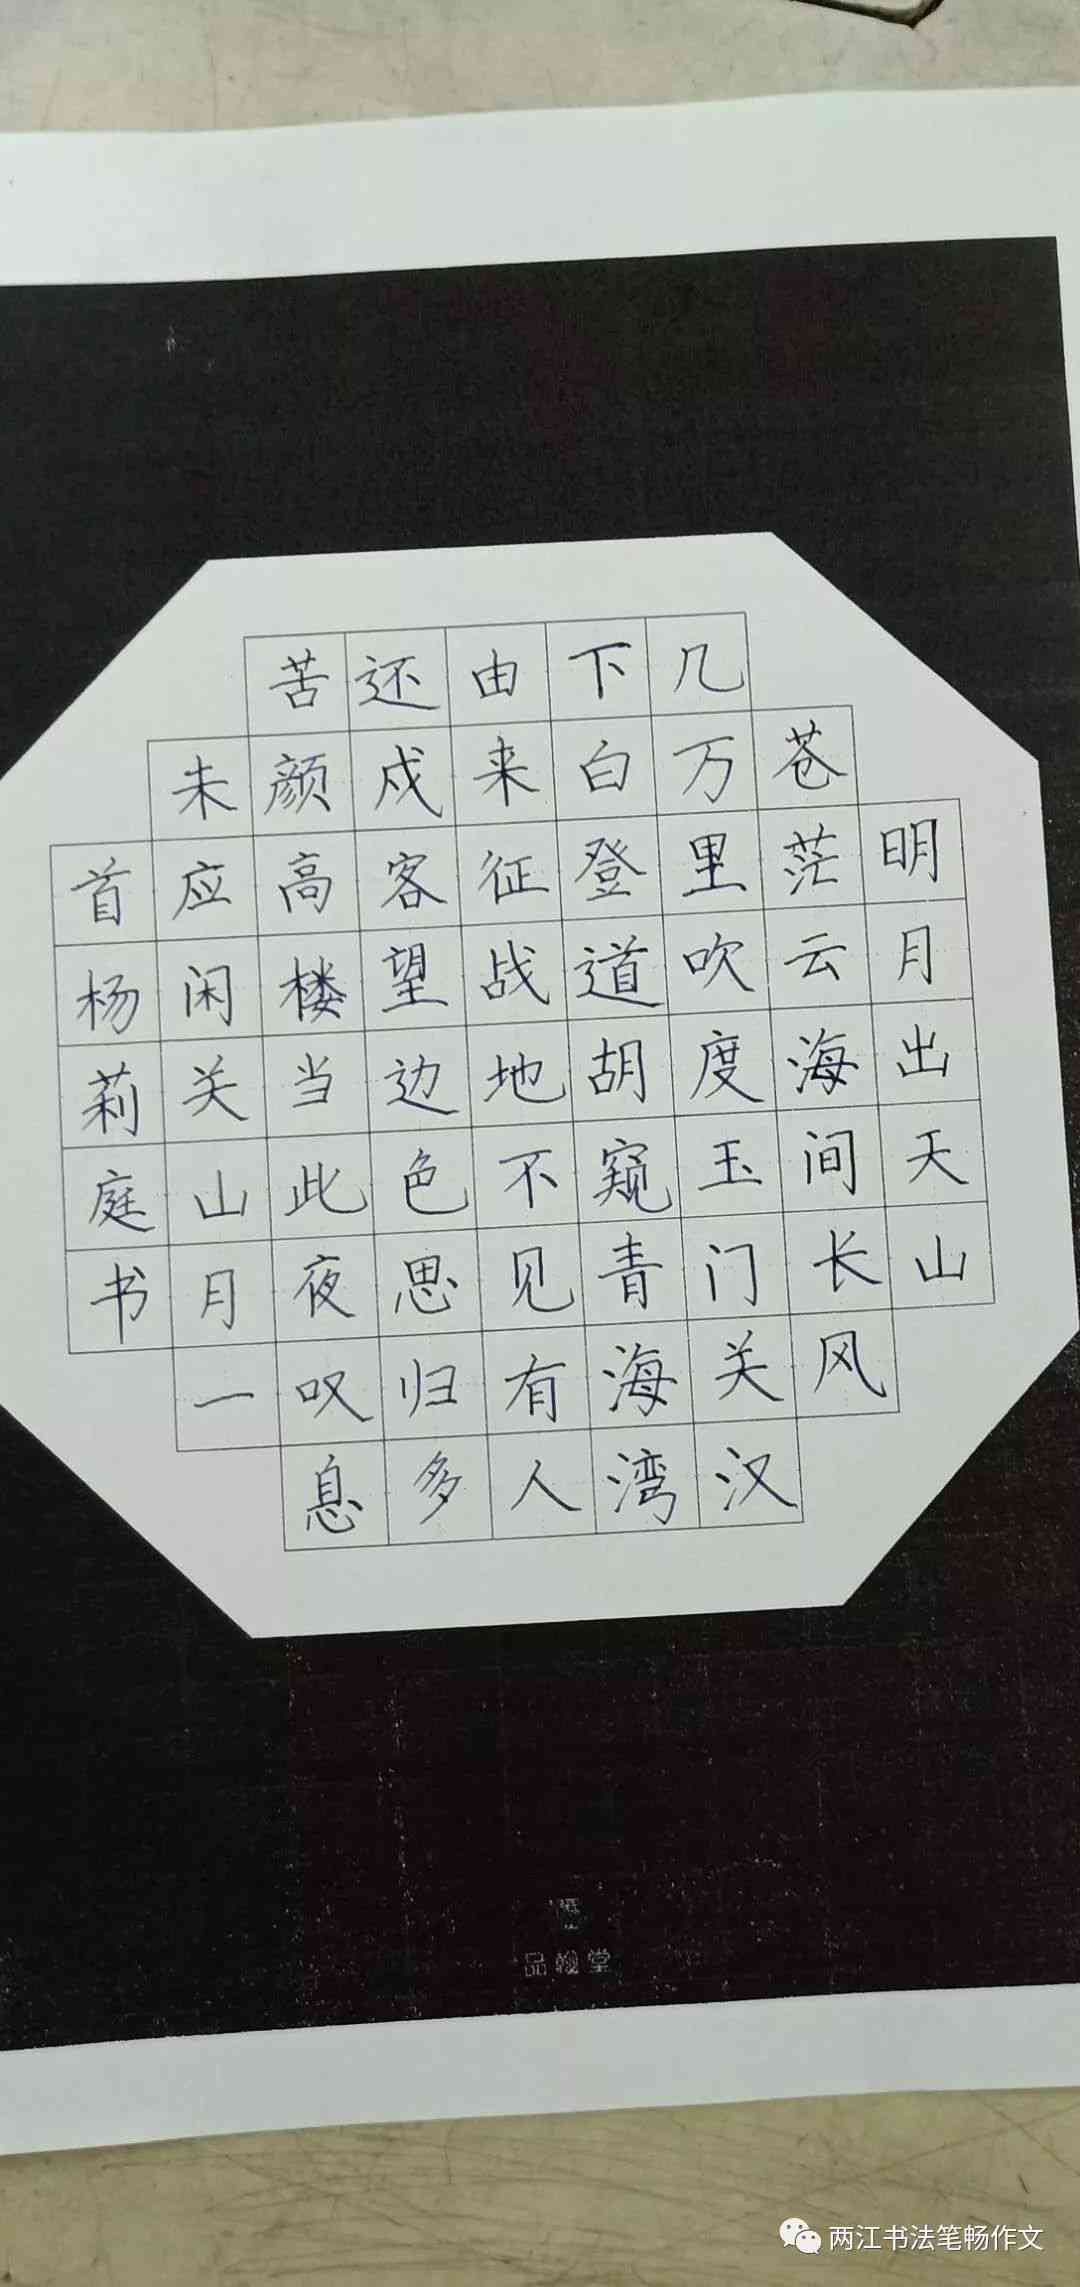 明月出天山
苍茫云海间长风
几万里吹度玉门关汉
下白登道胡窥青海湾
由来征战地不见有人
还戍客望边色思归多
苦颜高楼当此夜叹息
未应闲关山月一
首杨莉庭书
两江书法笔畅作文